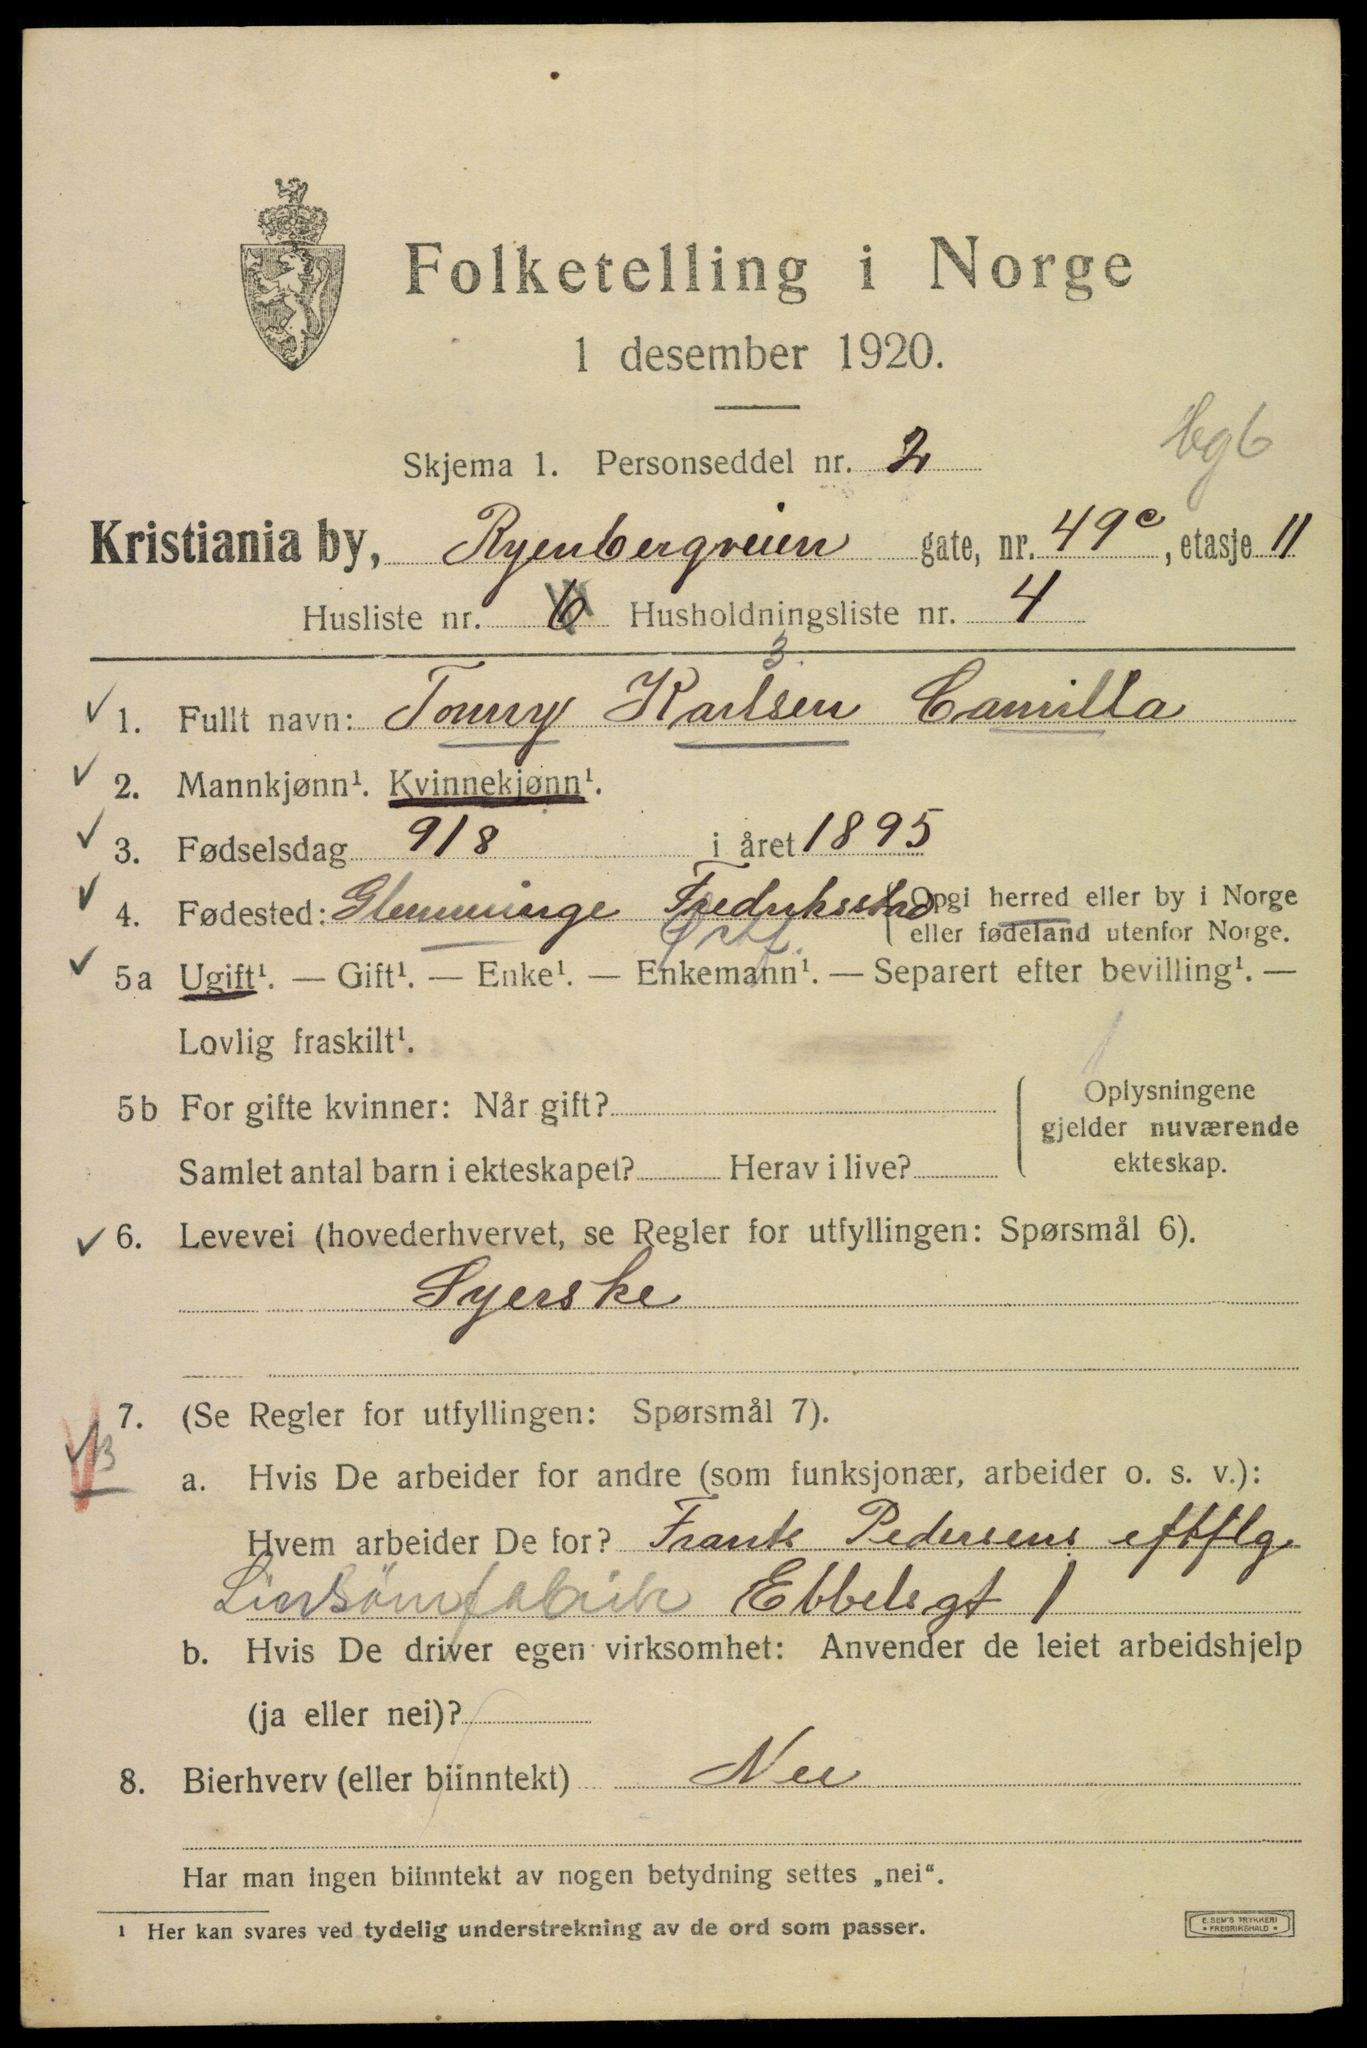 Folketelling i Norge
1 desember 1920.
bg6
Skjema 1. Personseddel nr. 2
Kristiania by, Ryenbergveien gate, nr. 49c, etasje II
Husliste nr. 6 Husholdningsliste nr. 4
3.
1. Fullt navn: Tonny Karlsen Camilla
2. Mannkjønn¹. Kvinnekjønn¹.
3. Fødselsdag 9/8 i året 1895
4. Fødested: Glemminge Fredriksstad Opgi herred eller by i Norge
Østf. eller fødeland utenfor Norge.
5a Ugift¹. — Gift¹. — Enke¹. — Enkemann¹. — Separert efter bevilling¹. —
Lovlig fraskilt¹.
5b For gifte kvinner: Når gift? Oplysningene
gjelder nuværende
Samlet antal barn i ekteskapet? Herav i live? ekteskap.
6. Levevei (hovederhvervet, se Regler for utfyllingen: Spørsmål 6).
Syerske
7. (Se Regler for utfyllingen: Spørsmål 7).
B
a. Hvis De arbeider for andre (som funksjonær, arbeider o. s. v.):
Hvem arbeider De for? Frank Pedersens eftflg
Linsömfabrik Ebbelsgt 1
b. Hvis De driver egen virksomhet: Anvender de leiet arbeidshjelp
(ja eller nei)?
8. Bierhverv (eller biinntekt) Nei
Har man ingen biinntekt av nogen betydning settes „nei“.
¹ Her kan svares ved tydelig understrekning av de ord som passer.
E. SEM'S TRYKKERI
FREDRIKSHALD